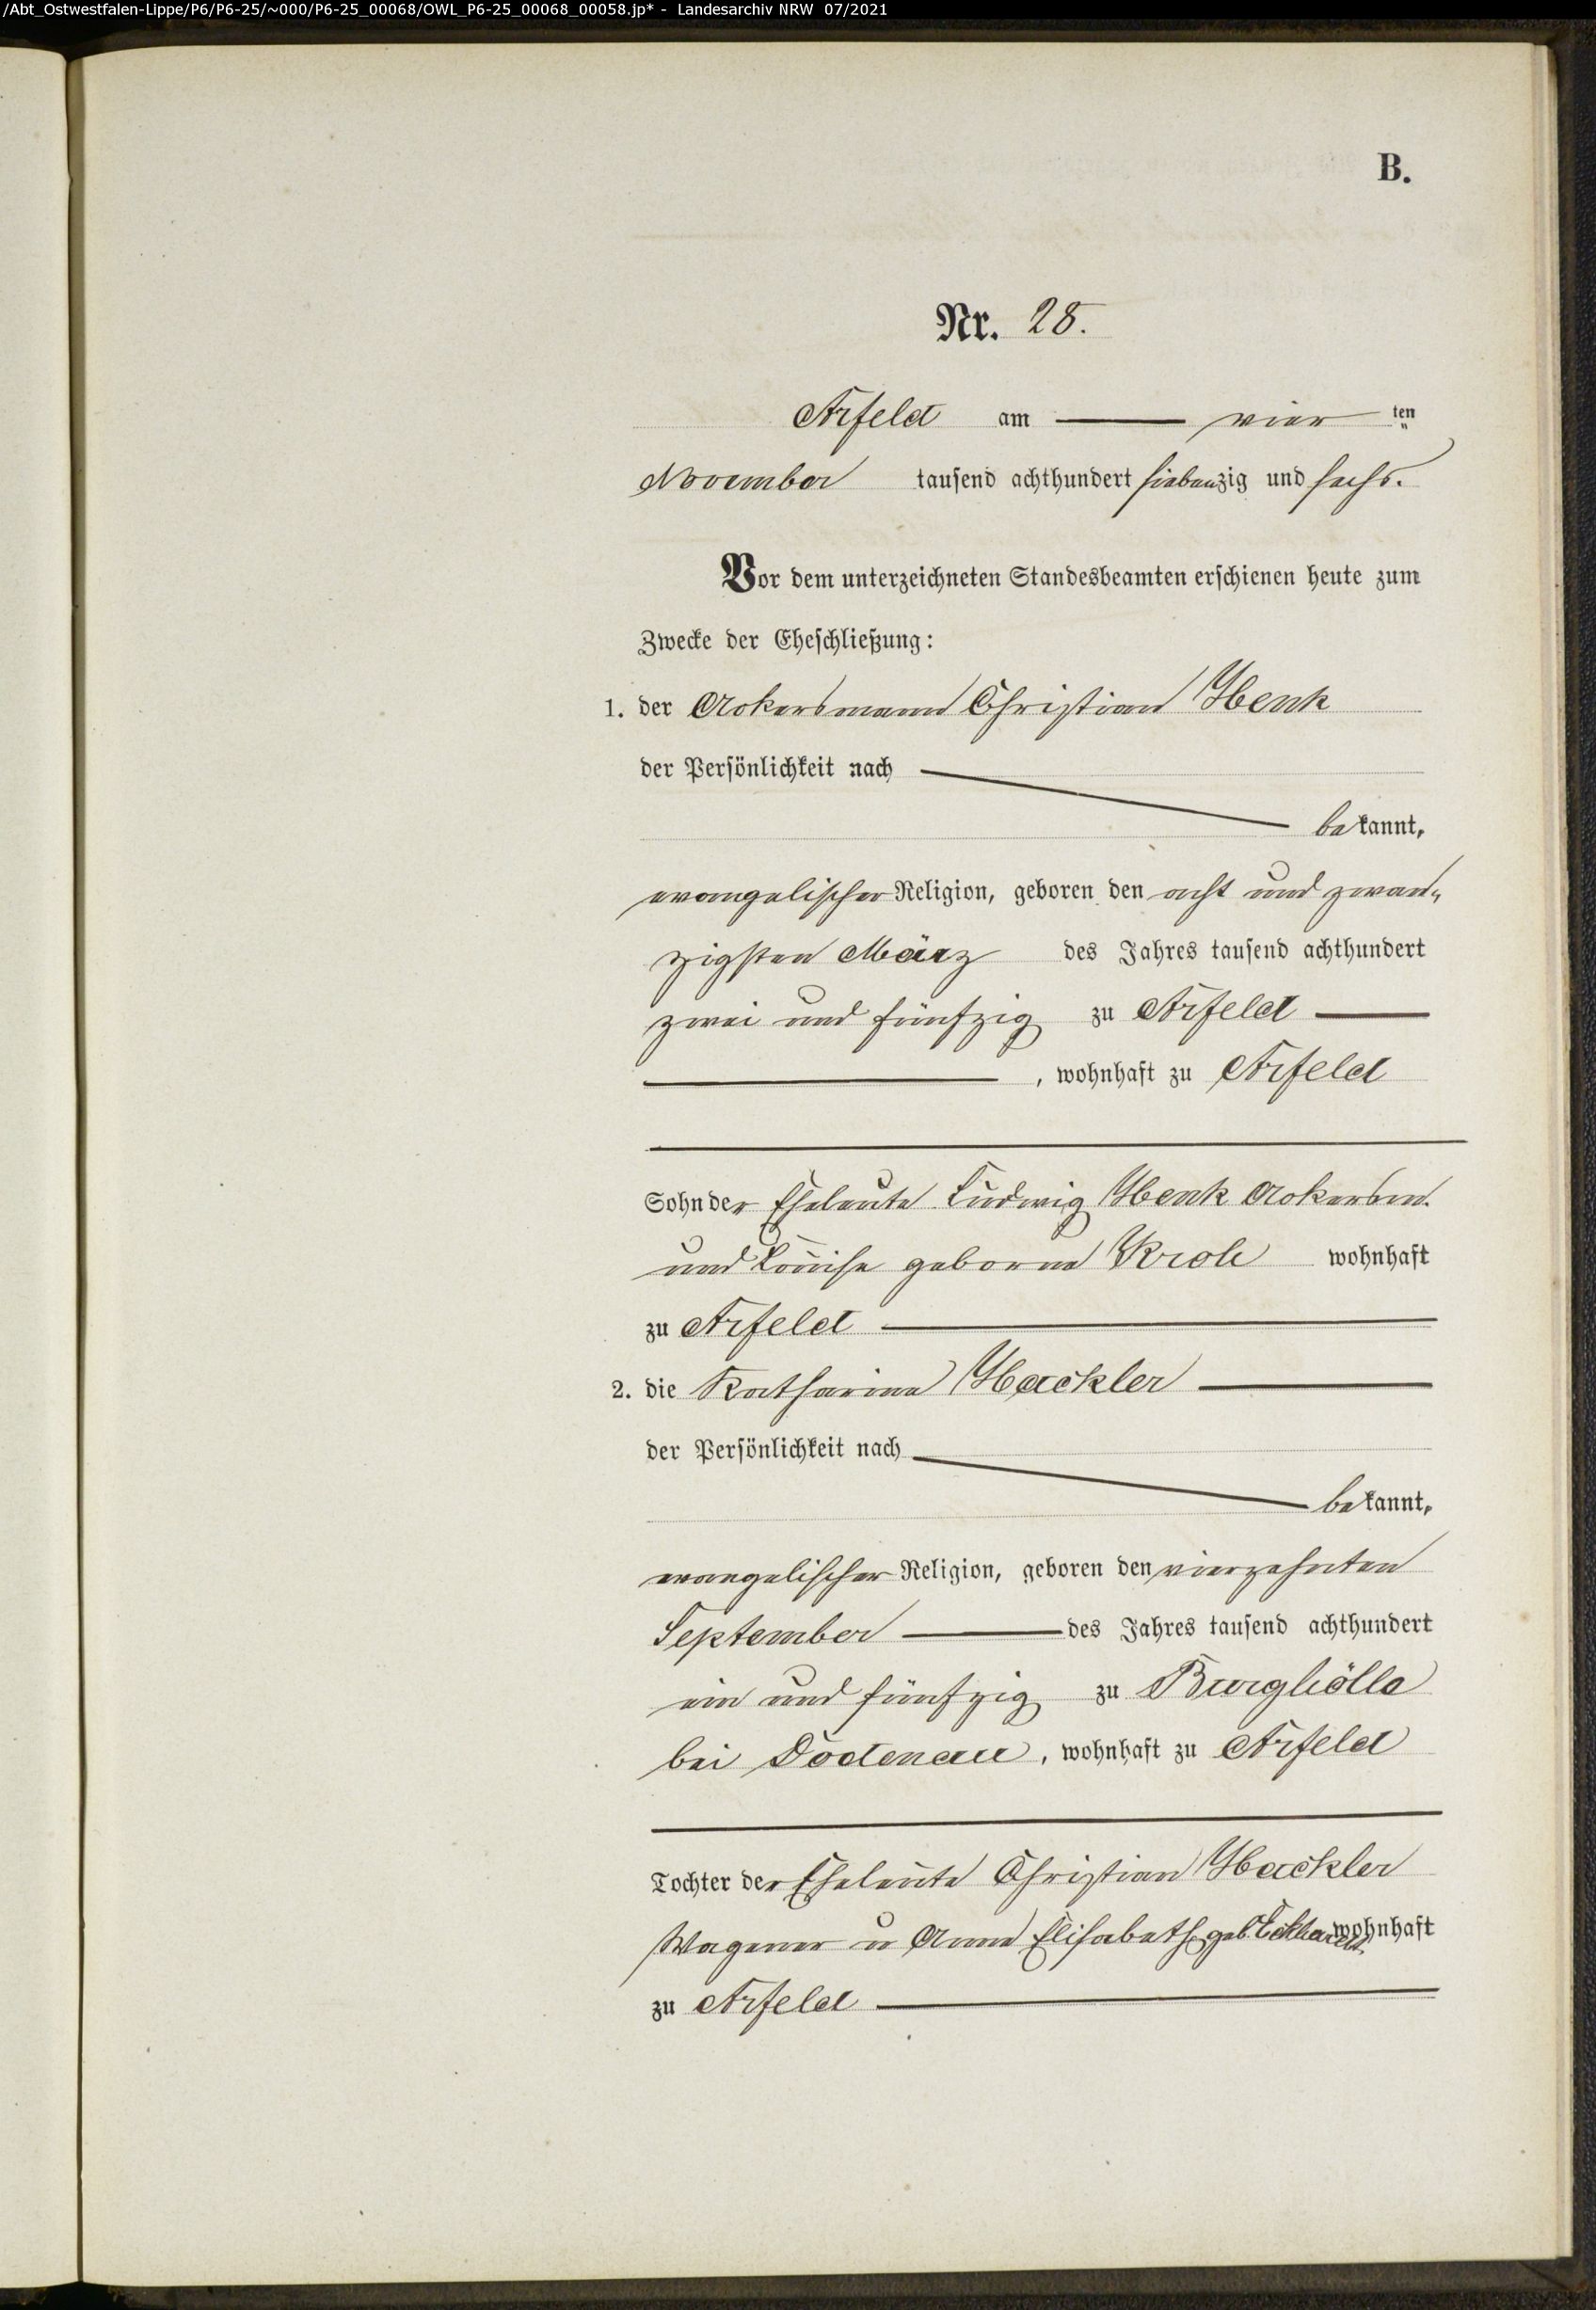 /Abt_Ostwestfalen-Lippe/P6/P6-25/~000/P6-25_00068/OWL_P6-25_00068_00058.jp* - Landesarchiv NRW 07/2021
B.
Nr. 28.
Arfeld am vier ten
November tausend achthundert siebenzig und sechs.
Vor dem unterzeichneten Standesbeamten erschienen heute zum
Zwecke der Eheschließung:
1. der Ackersmann Christian Henk
der Persönlichkeit nach
bekannt,
evangelischer Religion, geboren den acht und zwan„
zigsten März des Jahres tausend achthundert
zwei und fünfzig zu Arfeld
, wohnhaft zu Arfeld
Sohn der Eheleute Ludwig Henk Ackersm.
und Louise geborne Kroh wohnhaft
zu Arfeld
2. die Katharine Hackler
der Persönlichkeit nach
bekannt,
evangelischer Religion, geboren den vierzehnten
September des Jahres tausend achthundert
ein und fünfzig zu Burghölle
bei Dodenau, wohnhaft zu Arfeld
Tochter der Eheleute Christian Hackler
Wagener u Anna Elisabeth geb. Eckhardt wohnhaft
zu Arfeld